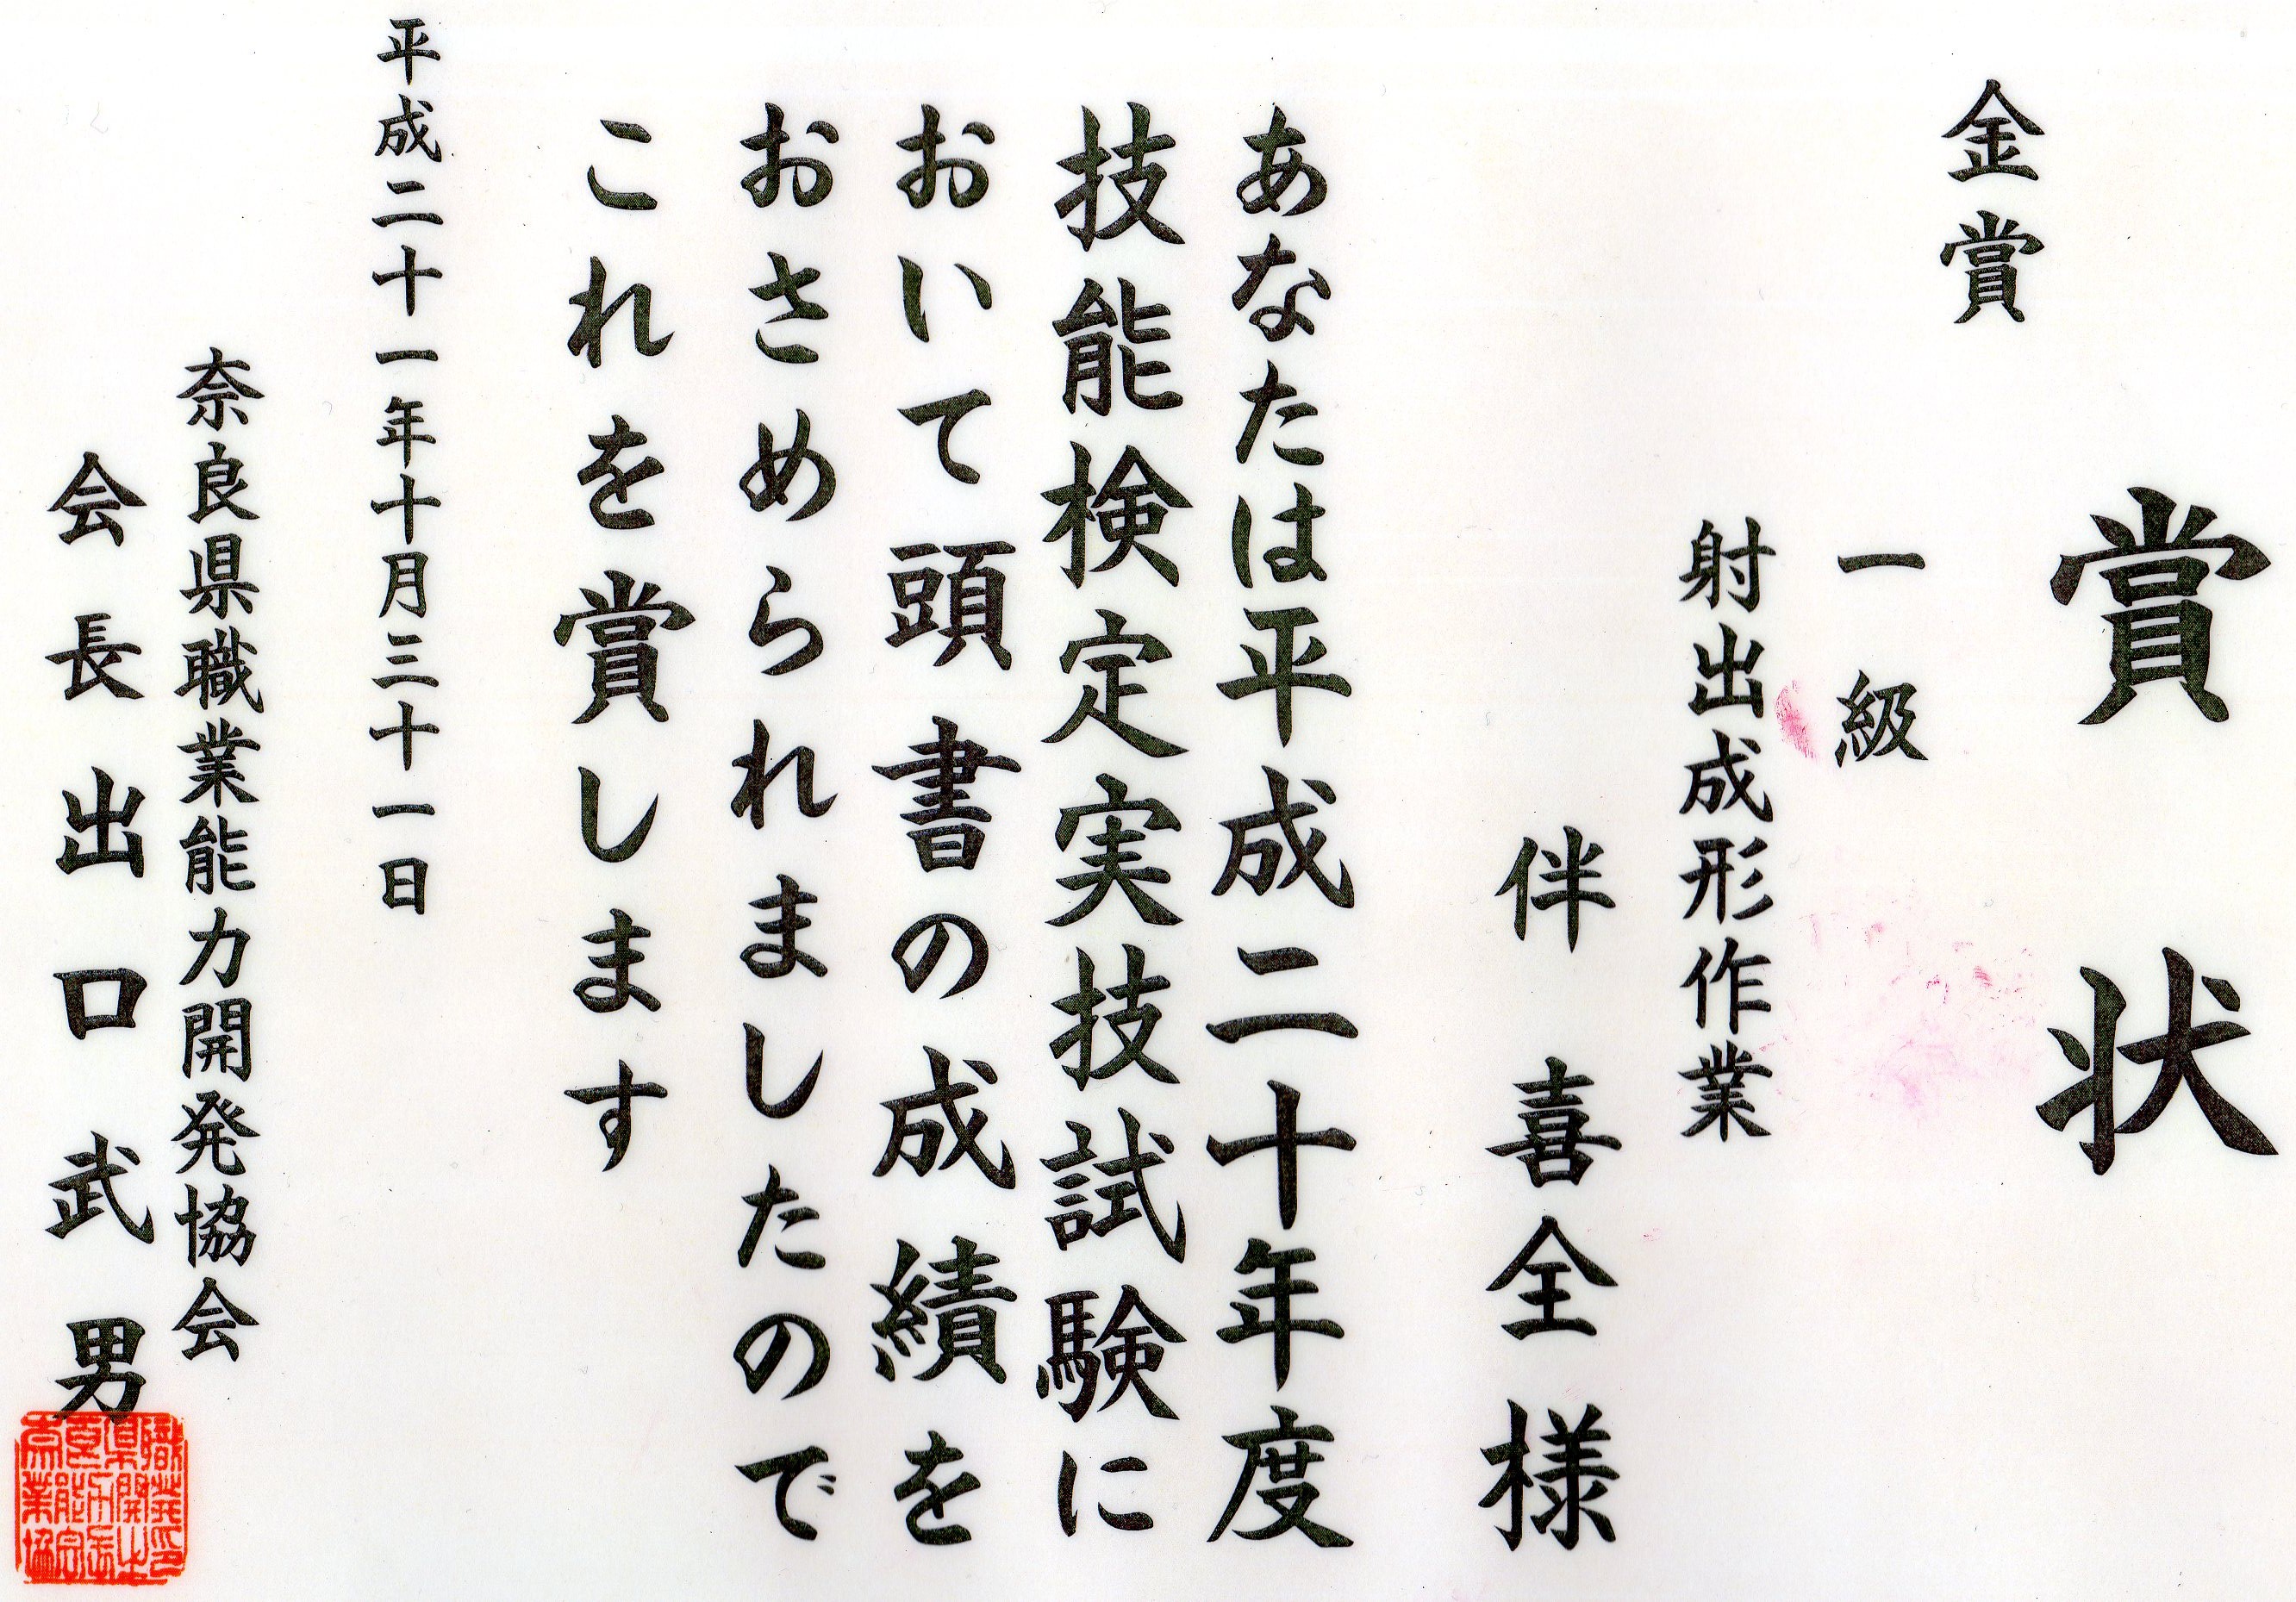 賞状
金賞
一級
射出成形作業
伴 喜全様
あなたは平成二十年度
技能検定実技試験に
おいて頭書の成績を
おさめられましたので
これを賞します
平成二十一年十月三十一日
奈良県職業能力開発協会
会長出口武男